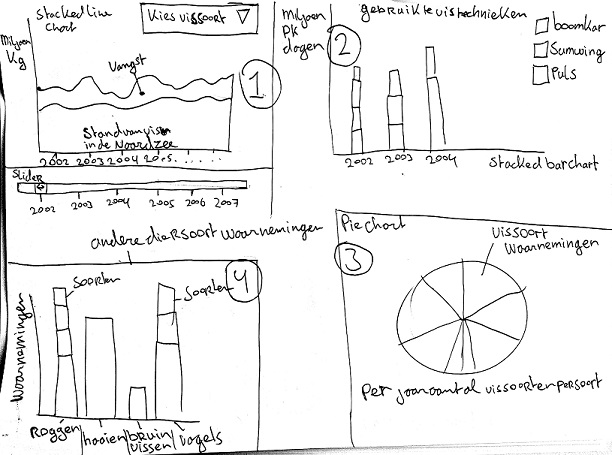 Stacked Line
Chart
Kies vissoort
Miljoen
Kg
Vangst
1
Stand van vis
in de Noordzee
2002 2003 2004 2005.....
Slider
2002 2003 2004 2005 2006 2007
Miljoen
PK
dagen
gebruikte vistechnieken
2
boomkor
Sumwing
Puls
2002 2003 2004
Stacked barchart
andere diersoort waarnemingen
4
Soorten
Soorten
Waarnemingen
Roggen
haaien
bruin
vissen
vogels
Pie chart
3
vissoort
waarnemingen
Per jaar aantal vissoorten per soort